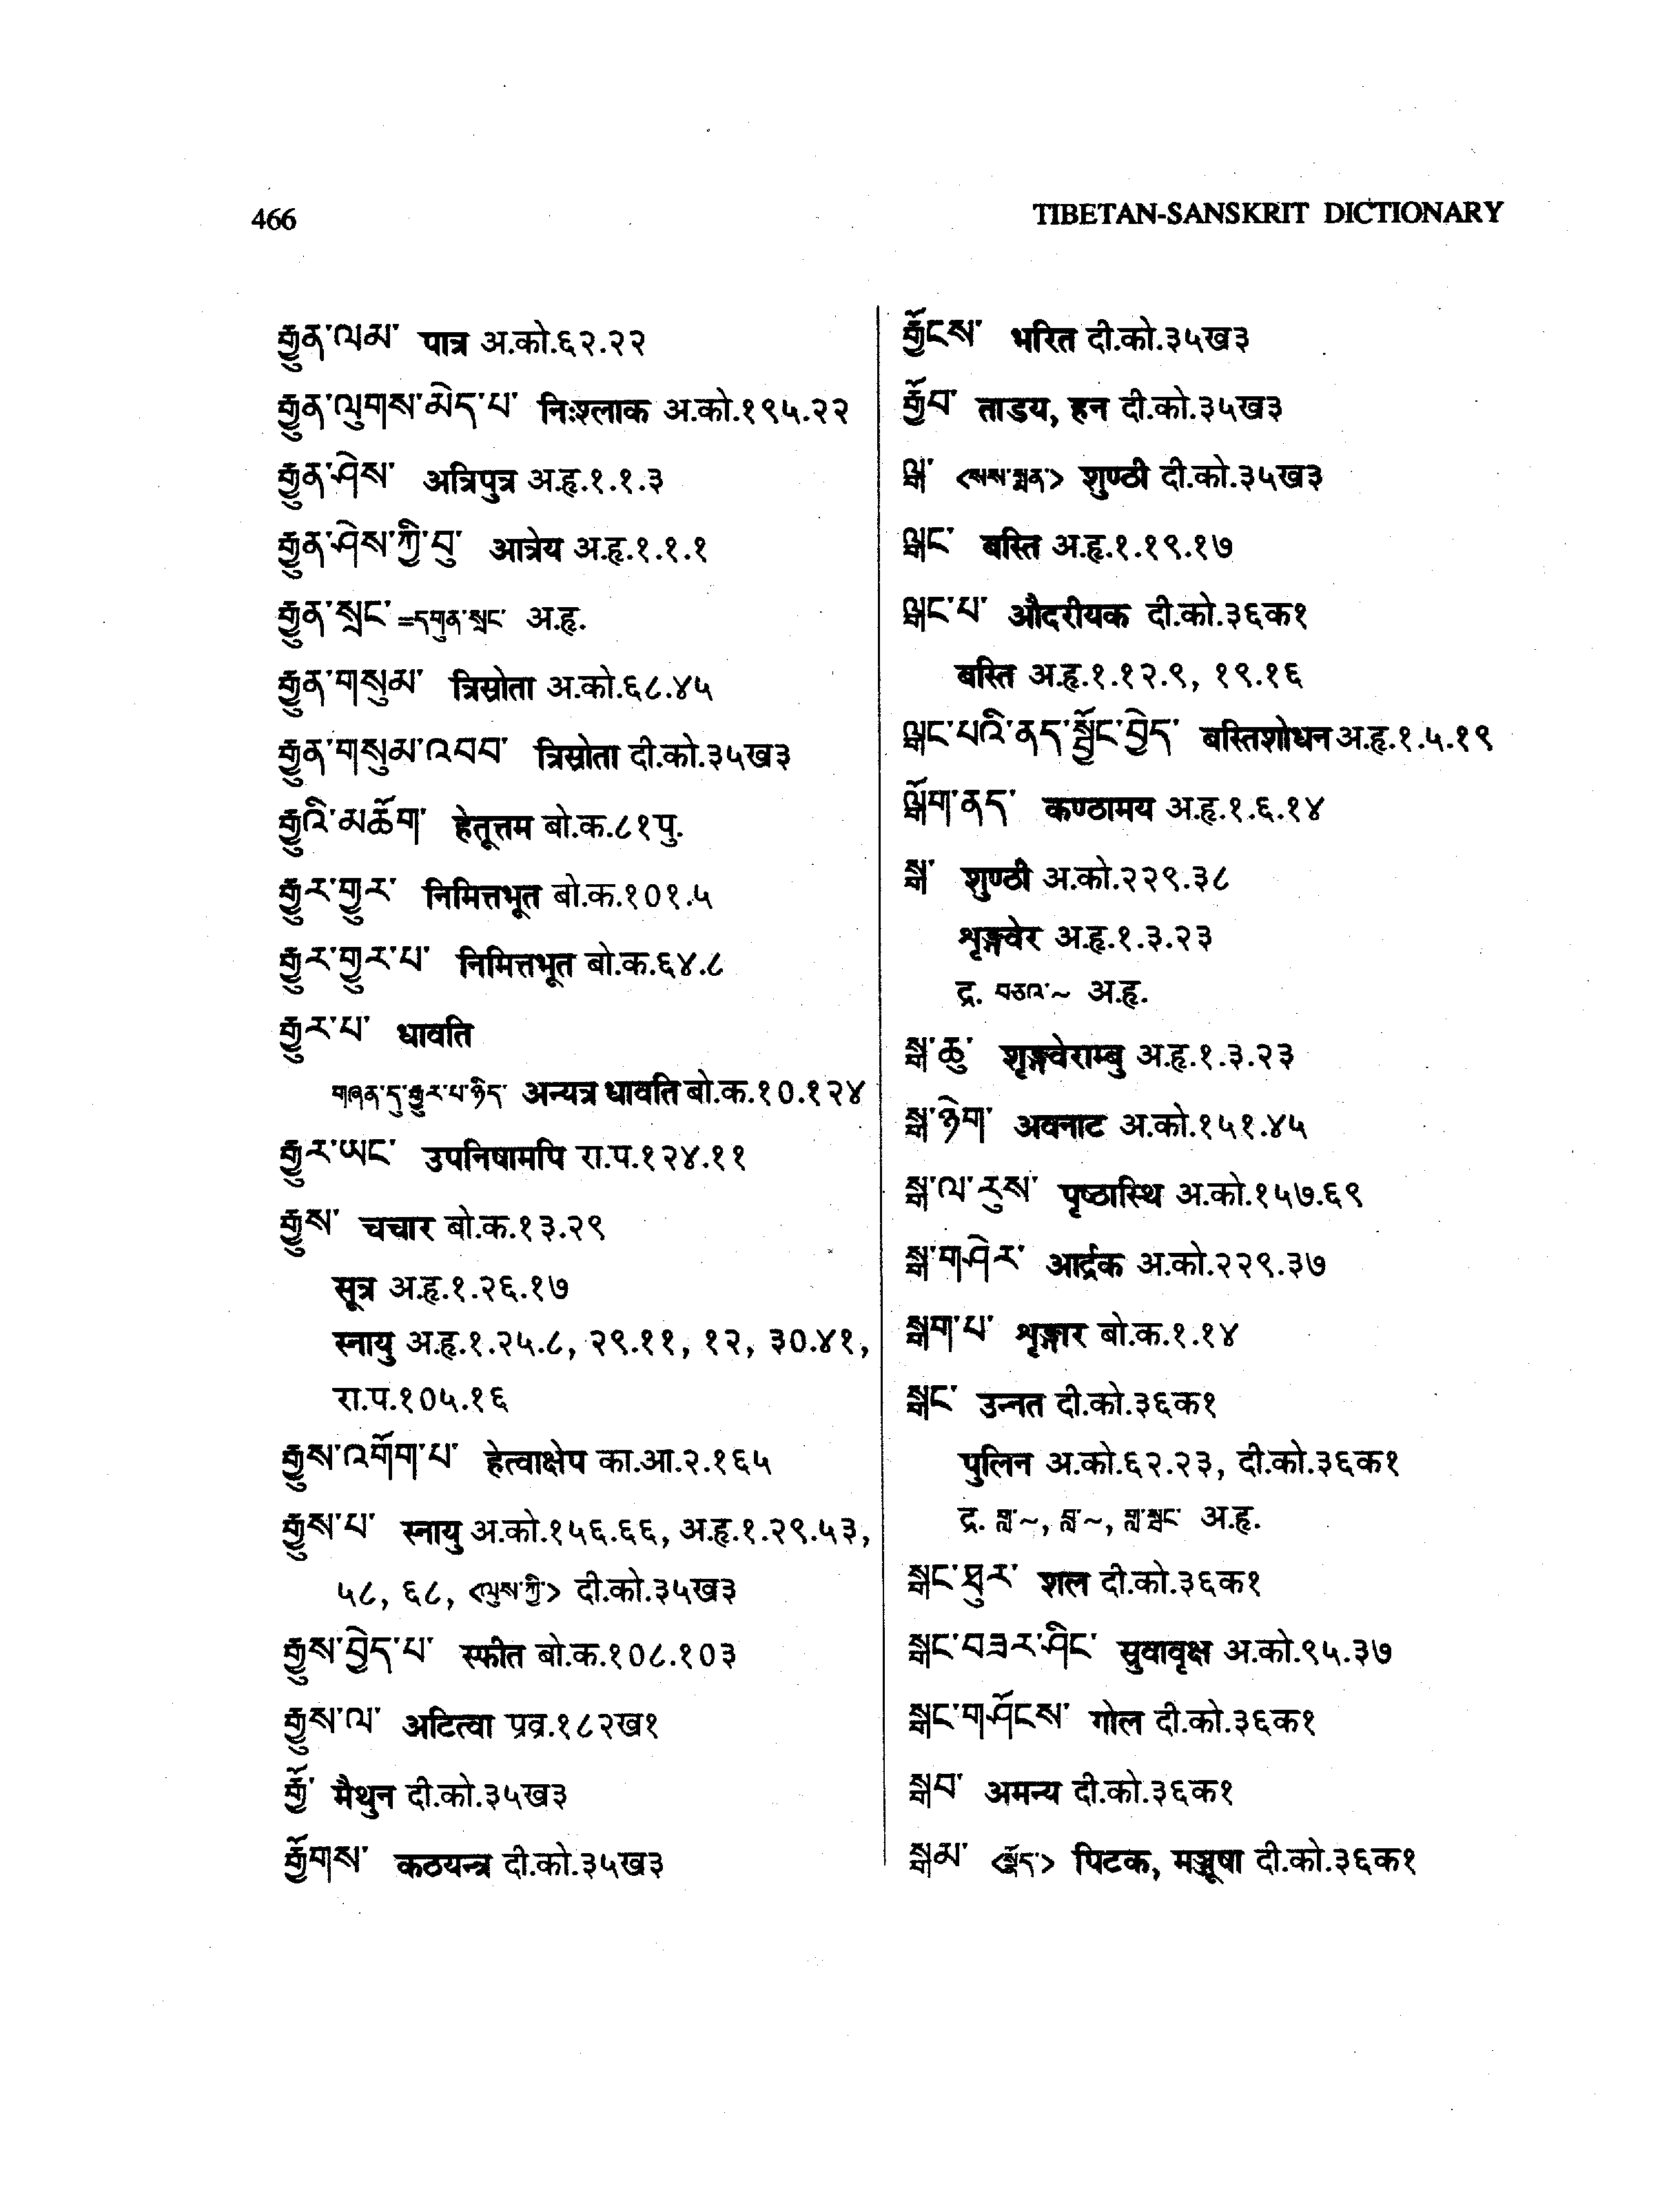 466
TIBETAN-SANSKRIT DICTIONARY
རྒྱུན་ལམ་ पात्र अ.को.६२.२२
རྒྱུན་ལུགས་མེད་པ་ निःश्लाक अ.को.१९५.२२
རྒྱུན་ཤེས་ अत्रिपुत्र अ.हृ.१.१.३
རྒྱུན་ཤེས་ཀྱི་བུ་ आत्रेय अ.हृ.१.१.१
རྒྱུན་སྲང་ =དགུན་སྲང་ अ.हृ.
རྒྱུན་གསུམ་ त्रिस्रोता अ.को.६८.४५
རྒྱུན་གསུམ་འབབ་ त्रिस्रोता दी.को.३५ख३
རྒྱུའི་མཆོག་ हेतूत्तम बो.क.८१पु.
རྒྱུར་གྱུར་ निमित्तभूत बो.क.१०१.५
རྒྱུར་གྱུར་པ་ निमित्तभूत बो.क.६४.८
རྒྱུར་པ་ धावति
གཞན་དུ་རྒྱུར་པ་ཉིད་ अन्यत्र धावति बो.क.१०.१२४
རྒྱུར་ཡང་ उपनिषामपि रा.प.१२४.११
རྒྱུས་ चचार बो.क.१३.२९
सूत्र अ.हृ.१.२६.१७
स्नायु अ.हृ.१.२५.८, २९.११, १२, ३०.४१,
रा.प.१०५.१६
རྒྱུས་འགོག་པ་ हेत्वाक्षेप का.आ.२.१६५
རྒྱུས་པ་ स्नायु अ.को.१५६.६६, अ.हृ.१.२९.५३,
५८, ६८, <ལུས་ཀྱི་> दी.को.३५ख३
རྒྱུས་བྱེད་པ་ स्फीत बो.क.१०८.१०३
རྒྱུས་ལ་ अटित्वा प्रव्र.१८२ख१
རྒྱོ་ मैथुन दी.को.३५ख३
རྒྱོགས་ कठयन्त्र दी.को.३५ख३
རྒྱོངས་ भरित दी.को.३५ख३
རྒྱོབ་ ताडय, हन दी.को.३५ख३
ལྒ་ <སས་སྨན་> शुण्ठी दी.को.३५ख३
ལྒང་ बस्ति अ.हृ.१.१९.१७
ལྒང་པ་ औदरीयक दी.को.३६क१
बस्ति अ.हृ.१.१२.९, १९.१६
ལྒང་པའི་ནད་སྦྱོང་བྱེད་ बस्तिशोधन अ.हृ.१.५.१९
ལྒོག་ནད་ कण्ठामय अ.हृ.१.६.१४
སྒ་ शुण्ठी अ.को.२२९.३८
शृङ्गवेर अ.हृ.१.३.२३
द्र. བཅའ་~ अ.हृ.
སྒ་ཆུ་ शृङ्गवेराम्बु अ.हृ.१.३.२३
སྒ་ཉེག་ अवनाट अ.को.१५१.४५
སྒ་ལ་རུས་ पृष्ठास्थि अ.को.१५७.६९
སྒ་གཤེར་ आर्द्रक अ.को.२२९.३७
སྒག་པ་ शृङ्गार बो.क.१.१४
སྒང་ उन्नत दी.को.३६क१
पुलिन अ.को.६२.२३, दी.को.३६क१
द्र. ~, ~, अ.हृ.
སྒང་ཐུར་ शल दी.को.३६क१
སྒང་བཟར་ཤིང་ स्रुवावृक्ष अ.को.९५.३७
སྒང་གཤོངས་ गोल दी.को.३६क१
སྒབ་ अमन्य दी.को.३६क१
སྒམ་ <སྣོད་> पिटक, मञ्जूषा दी.को.३६क१